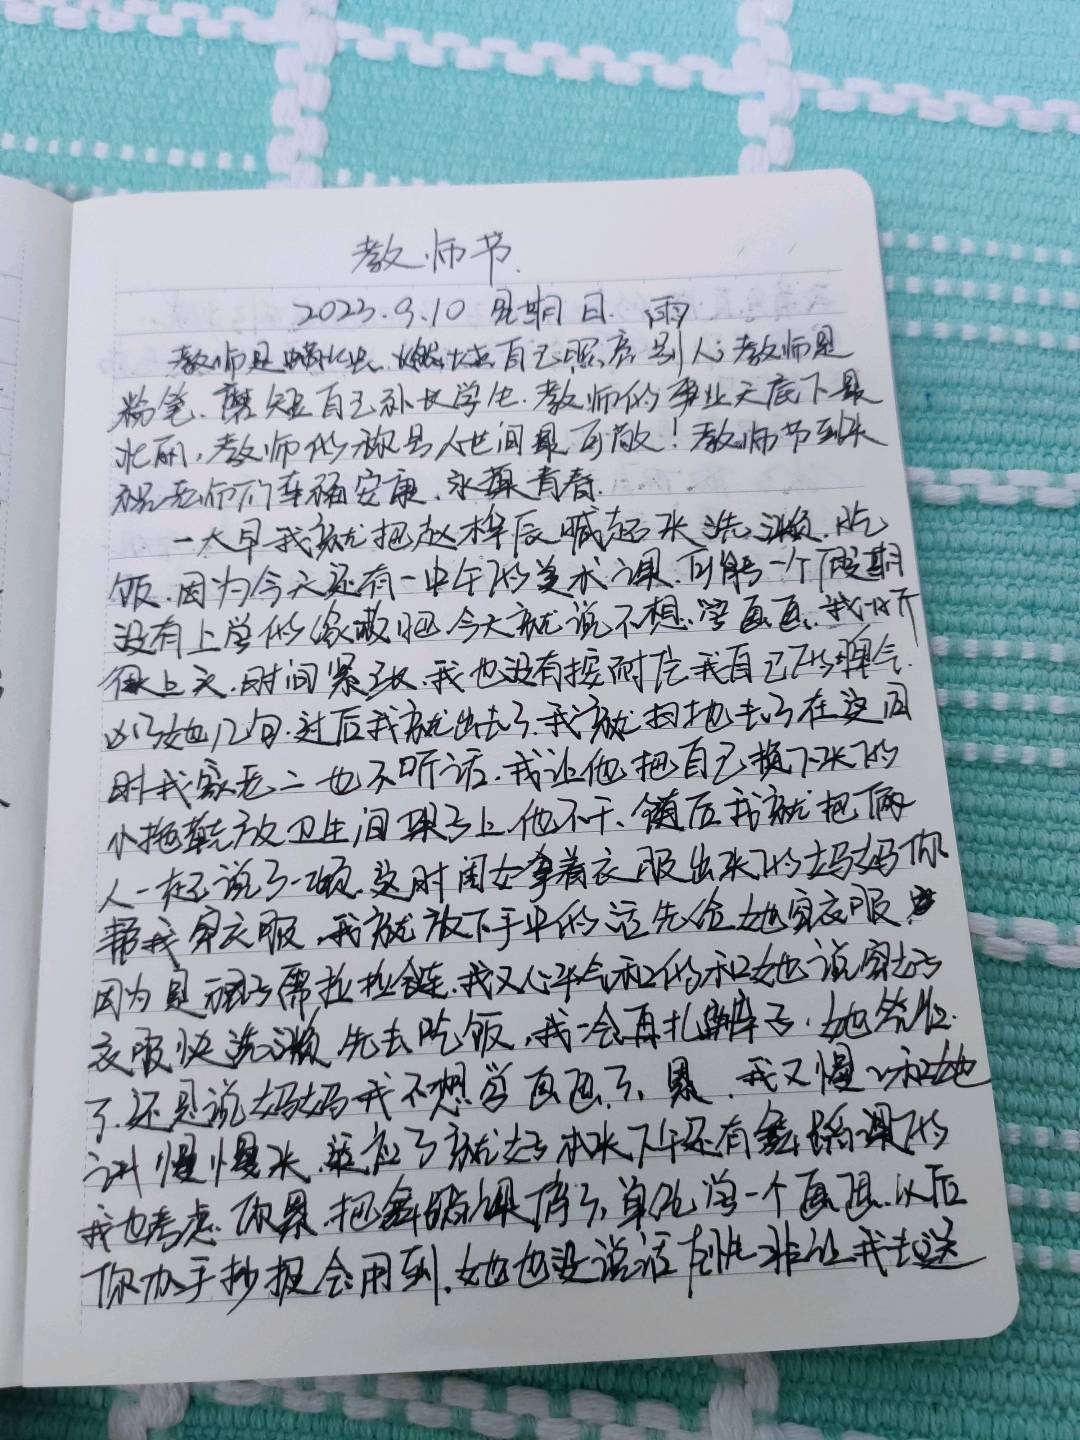 教师节
2023.9.10 星期日 雨
教师是蜡烛,燃烧自己照亮别人;教师是
粉笔,磨短自己补长学生.教师的事业天底下最
壮丽,教师的称号人世间最可敬!教师节到来
祝老师们幸福安康,永葆青春.
一大早我就把赵梓辰喊起来洗漱,吃
饭,因为今天还有一中午的美术课,可能一个假期
没有上学的缘故吧,今天就说不想学画画,我一听
很上火,时间紧张,我也没有按耐住我自己的脾气.
凶了她几句.过后我就出去了,我就扫地去了在这同
时我家老二也不听话,我让他把自己换下来的
小拖鞋放卫生间架子上,他不干,随后我就把俩
人一起说了一顿,这时闺女拿着衣服出来的妈妈你
帮我穿衣服,我就放下手中的活先给她穿衣服,
因为是裙子需拉拉链,我又心平气和的和她说穿好
衣服快洗漱,先去吃饭,我一会再扎辫子,她答应
了,还是说妈妈我不想学画画了,累,我又慢慢和她
讲慢慢来,适应了就好本来下午还有舞蹈课的
我也考虑你累,把舞蹈课停了,单纯学一个画画,以后
你办手抄报会用到,她也没说话 非让我去送